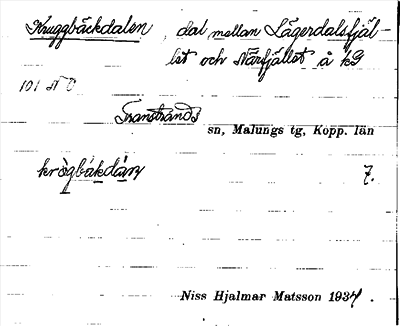 Kruggbäckdalen, dal mellan Lägerdalsfjäl-
let och Närfjället å kG
101 N Ö
Transtrands
sn, Malungs tg, Kopp. län
krögbäkdán 7.
Niss Hjalmar Matsson 1937.